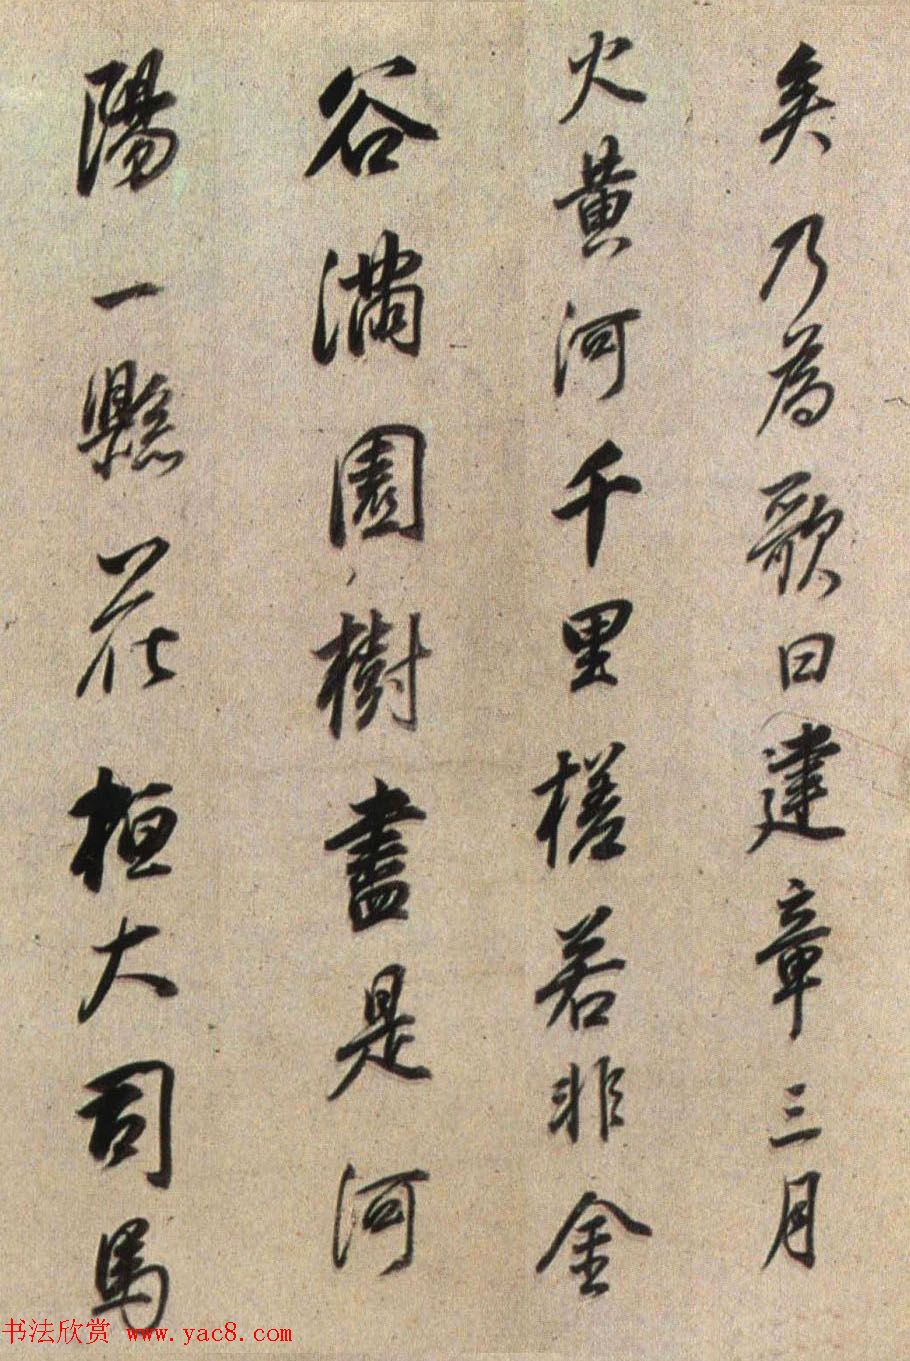 矣乃為歌曰建章三月
火黃河千里槎若非金
谷滿園樹盡是河
陽一縣花桓大司馬
书法欣赏 www.yac8.com